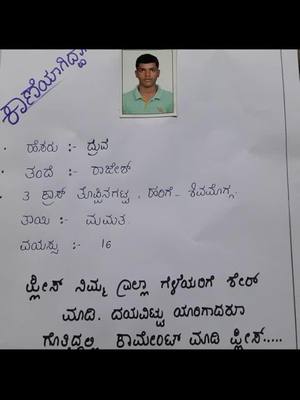 ಕಾಣೆಯಾಗಿದ್ದಾ
ಹೆಸರು :- ದ್ರುವ
ತಂದೆ :- ರಾಜೇಶ್
3 ಕ್ರಾಸ್ ತೊಪ್ಪಿನಗಟ್ಟ, ಹರಿಗೆ- ಶಿವಮೊಗ್ಗ.
ತಾಯಿ :- ಮಮತ
ವಯಸ್ಸು :- 16
ಪ್ಲೀಸ್ ನಿಮ್ಮ ಎಲ್ಲಾ ಗೆಳೆಯರಿಗೆ ಶೇರ್
ಮಾಡಿ. ದಯವಿಟ್ಟು ಯಾರಿಗಾದರೂ
ಗೊತ್ತಿದ್ದಲ್ಲಿ ಕಾಮೇಂಟ್ ಮಾಡಿ ಪ್ಲೀಸ್.....